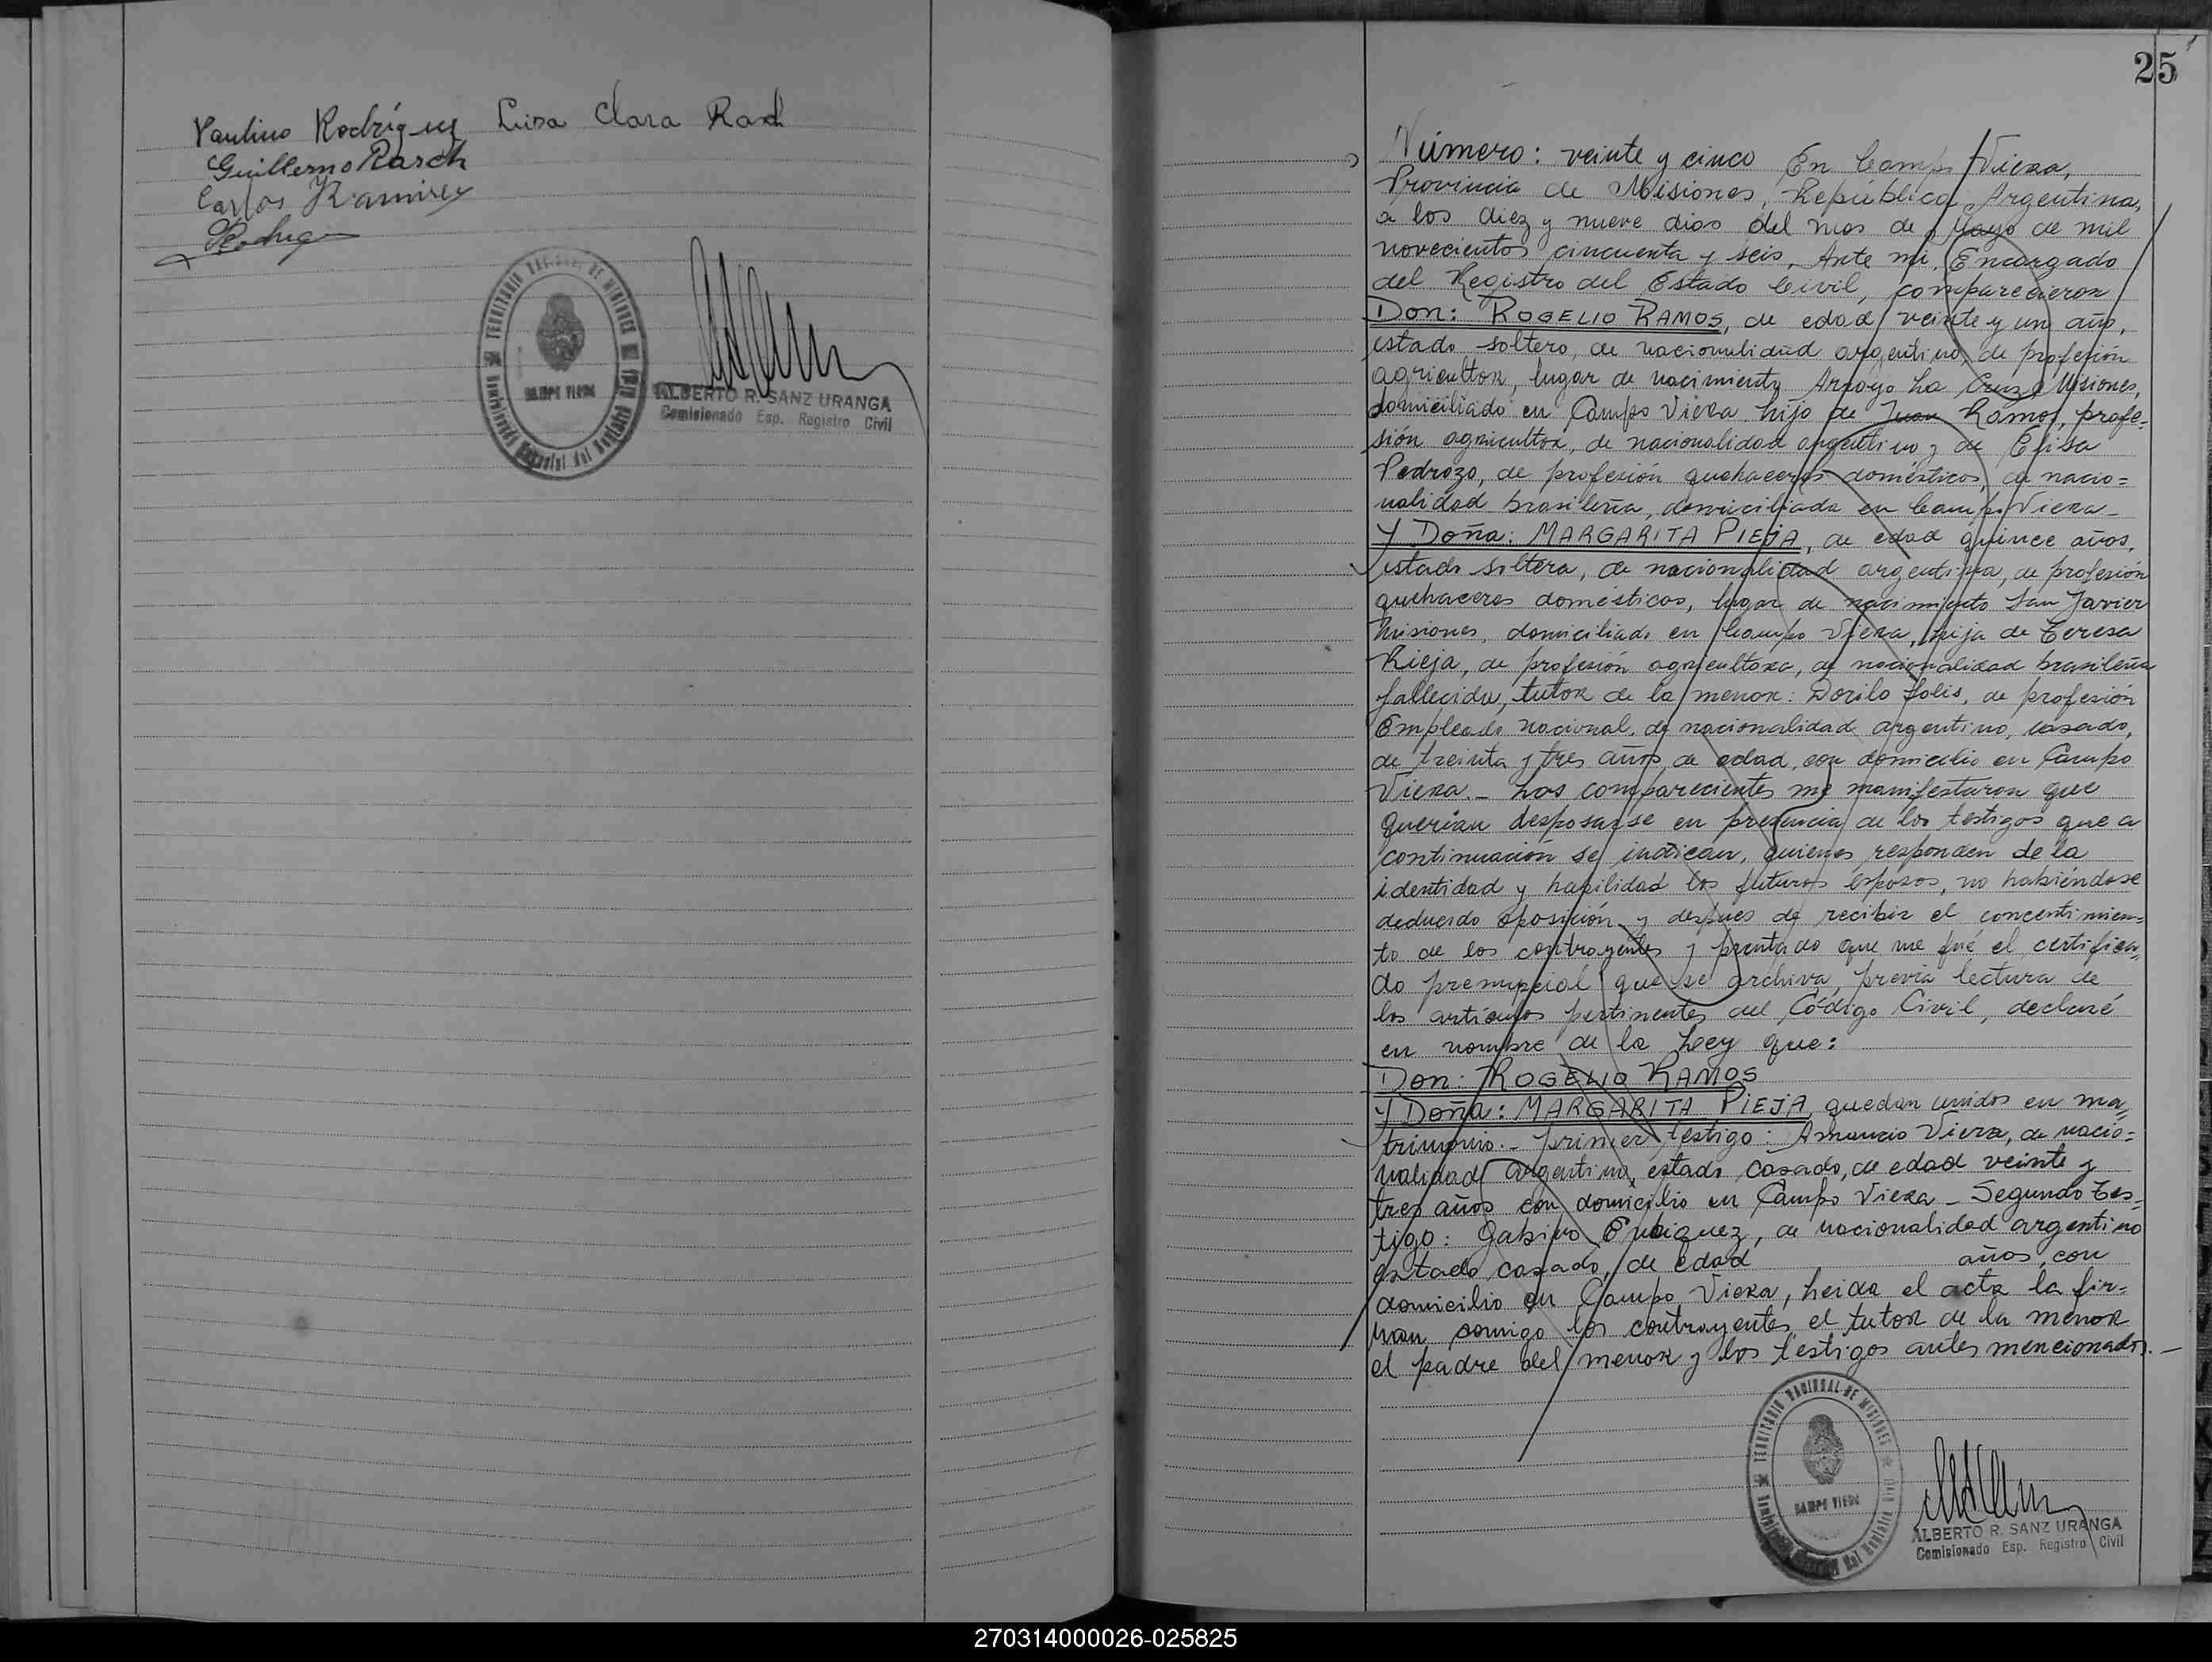 Paulino Rodríguez Luisa Clara Rasch
Guillermo Rasch
Carlos Ramirez
TERRITORIO NACIONAL DE MISIONES
CAMPO VIERA
ALBERTO R. SANZ URANGA
Comisionado Esp. Registro Civil
25
Número: veinte y cinco En Campo Viera,
Provincia de Misiones, República Argentina,
a los diez y nueve dias del mes de Mayo de mil
novecientos cincuenta y seis, Ante mi, Encargado
del Registro del Estado Civil, comparecieron
Don: ROGELIO RAMOS, de edad veinte y un año,
estado soltero, de nacionalidad argentino, de profesión
agricultor, lugar de nacimiento Arroyo La Cruz Misiones,
domiciliado en Campo Viera hijo de Juan Ramos, profe=
sión agricultor, de nacionalidad argentino y de Elisa
Pedrozo, de profesión quehaceres domésticos, de nacio=
nalidad brasileña, domiciliada en Campo Viera -
Y Doña: MARGARITA PIEJA, de edad quince años,
estado soltera, de nacionalidad argentina, de profesión
quehaceres domesticos, lugar de nacimiento San Javier
Misiones, domiciliado en Campo Viera, hija de Teresa
Pieja, de profesión agricultora, de nacionalidad brasileña
fallecida, tutor de la menor: Dorilo Solis, de profesión
Empleado nacional, de nacionalidad argentino, casado,
de treinta y tres años de edad, con domicilio en Campo
Viera. - Los comparecientes me manifestaron que
querian desposarse en presencia de los testigos que a
continuación se indican, quienes responden de la
identidad y habilidad los futuros esposos, no habiéndose
deducido oposición y despues de recibir el concentimien=
to de los contrayentes y prentado que me fué el certifica=
do prenupcial que se archiva, previa lectura de
los articulos pertinentes del Código Civil, declaré
en nombre de la Ley que:
Don: ROGELIO RAMOS
Y Doña: MARGARITA PIEJA, quedan unidos en ma=
trimonio. - primer testigo: Amancio Viera, de nacio=
nalidad argentino, estado casado, de edad veinte y
tres años con domicilio en Campo Viera - Segundo tes=
tigo: Gabino Enriquez, de nacionalidad argentino
estado casado, de edad años, con
domicilio en Campo Viera, leida el acta la fir=
man comigo los contrayentes, el tutor de la menor
el padre del menor y los testigos antes mencionados. -
TERRITORIO NACIONAL DE MISIONES
CAMPO VIERA
ALBERTO R. SANZ URANGA
Comisionado Esp. Registro Civil
270314000026-025825